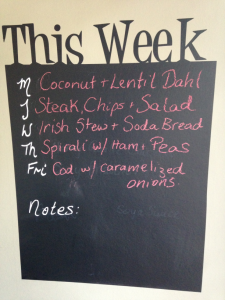 This Week
M Coconut + Lentil Dahl
T Steak, Chips + Salad
W Irish Stew + Soda Bread
Th Spirali w/ Ham + Peas
Fri Cod w/ caramelized
onions.
Notes: